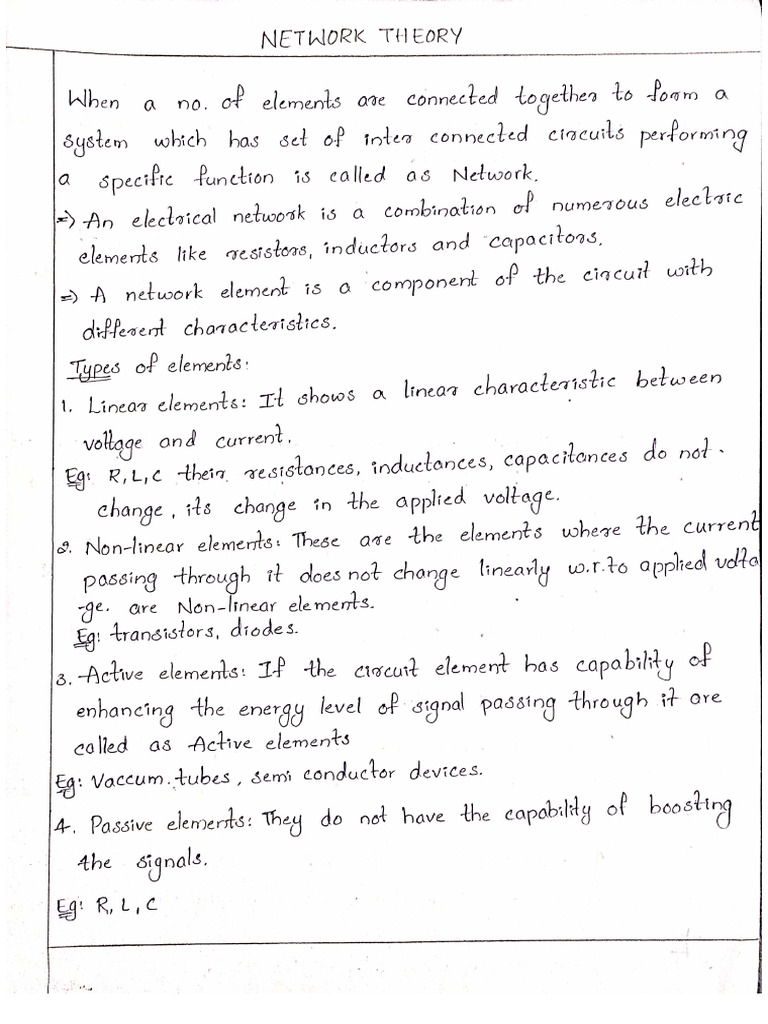 NETWORK THEORY
When a no. of elements are connected together to form a
system which has set of inter connected circuits performing
a specific function is called as Network.
=> An electrical network is a combination of numerous electric
elements like resistors, inductors and capacitors.
=> A network element is a component of the circuit with
different characteristics.
Types of elements:
1. Linear elements: It shows a linear characteristic between
voltage and current.
Eg: R, L, C their resistances, inductances, capacitances do not
change, its change in the applied voltage.
2. Non-linear elements: These are the elements where the current
passing through it does not change linearly w.r.to applied volta
-ge. are Non-linear elements.
Eg: transistors, diodes.
3. Active elements: If the circuit element has capability of
enhancing the energy level of signal passing through it are
called as Active elements
Eg: Vaccum.tubes, semi conductor devices.
4. Passive elements: They do not have the capability of boosting
the signals.
Eg: R, L, C